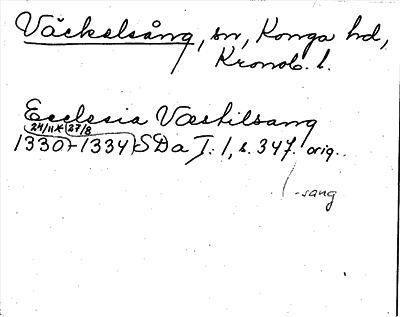 Väckelsång, sn, Konga hd,
Kronob. l.
Ecclesia Væskilsang
24/11 * 27/8
1330 - 1334 SDa I: 1, s. 347. orig.
-sang